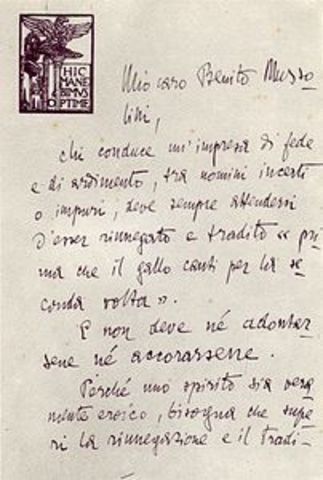 HIC
MANE
BIMVS
OPTIME
Mio caro Benito Musso
lini,
chi conduce un'impresa di fede
e di ardimento, tra uomini incerti
o impuri, deve sempre attendersi
d'esser rinnegato e tradito « pri
ma che il gallo canti per la se
conda volta ».
E non deve né adontar
sene né accorarsene.
Perché uno spirito sia vera
mente eroico, bisogna che supe
ri la rinnegazione e il tradi-